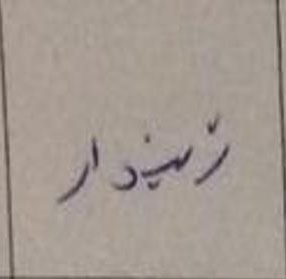 زمیندار